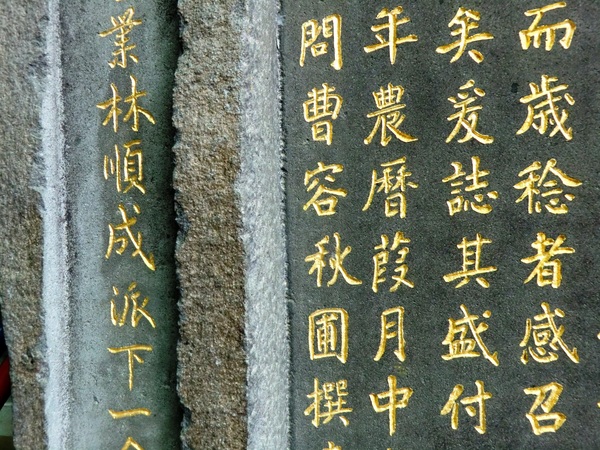 而歲稔者感召
矣爰誌其盛付
年農曆葭月中
問曹容秋圃撰
業林順成派下一